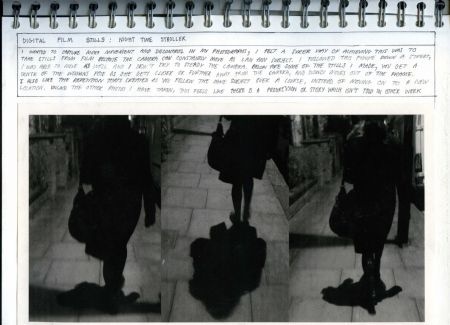 DIGITAL FILM STILLS: NIGHT TIME STROLLER
I WANTED TO CAPTURE MORE MOVEMENT AND DECISIONS IN MY PHOTOGRAPHS, I FELT A GOOD WAY OF ACHIEVING THIS WAS TO
TAKE STILLS FROM FILM BECAUSE THE CAMERA CAN CONSTANTLY MOVE AS CAN OUR SUBJECT. I FOLLOWED THIS FIGURE DOWN A STREET,
I WAS ABLE TO MOVE AS WELL AND I DIDN'T TRY TO STEADY THE CAMERA. BELOW ARE SOME OF THE STILLS I MADE, YOU GET A
SENSE OF THE WOMANS AS SHE GETS CLOSER OR FURTHER AWAY FROM THE CAMERA, AND MOVES OUT OF THE FRAME.
I ALSO LIKE THE REPETITION THAT'S CREATED AS YOU FOLLOW THE SAME SUBJECT OVER A COUPLE, INSTEAD OF MOVING ON TO A NEW
LOCATION, UNLIKE THE OTHER PHOTOS I HAVE TAKEN, THIS FEELS LIKE THERE IS A PROGRESSION OR STORY WHICH ISN'T IN OTHER WORK